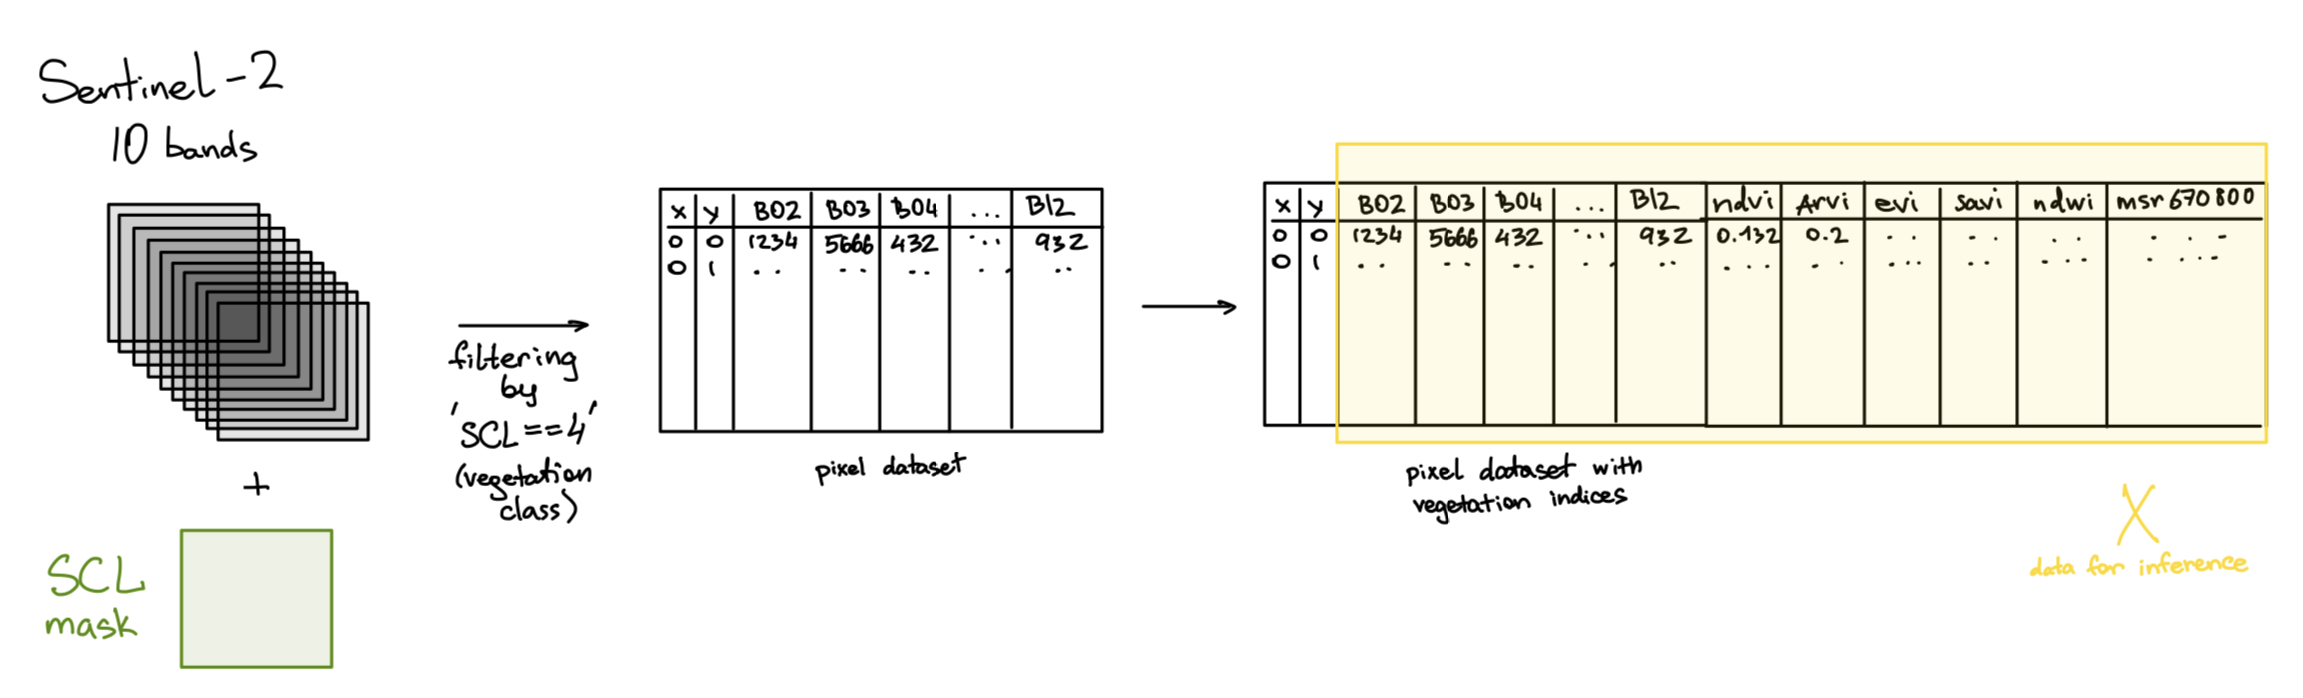 Sentinel-2
10 bands
+
SCL
mask
filtering
by
'SCL==4'
(vegetation
class)
x y B02 B03 B04 ... B12
0 0 1234 5666 432 ... 932
0 1 .. .. .. .. ..
pixel dataset
x y B02 B03 B04 ... B12 ndvi Arvi evi savi ndwi msr670800
0 0 1234 5666 432 ... 932 0.132 0.2 .. .. .. ...
0 1 .. .. .. .. .. ... .. ... .. ... ....
pixel dataset with
vegetation indices
X
data for inference